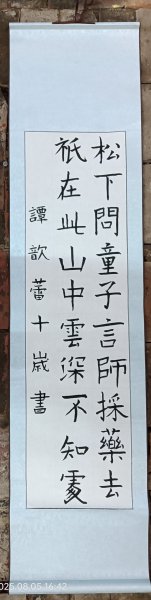 松下問童子言師採藥去
衹在此山中雲深不知處
譚歆蕾十歲書
2025.08.05 16:42